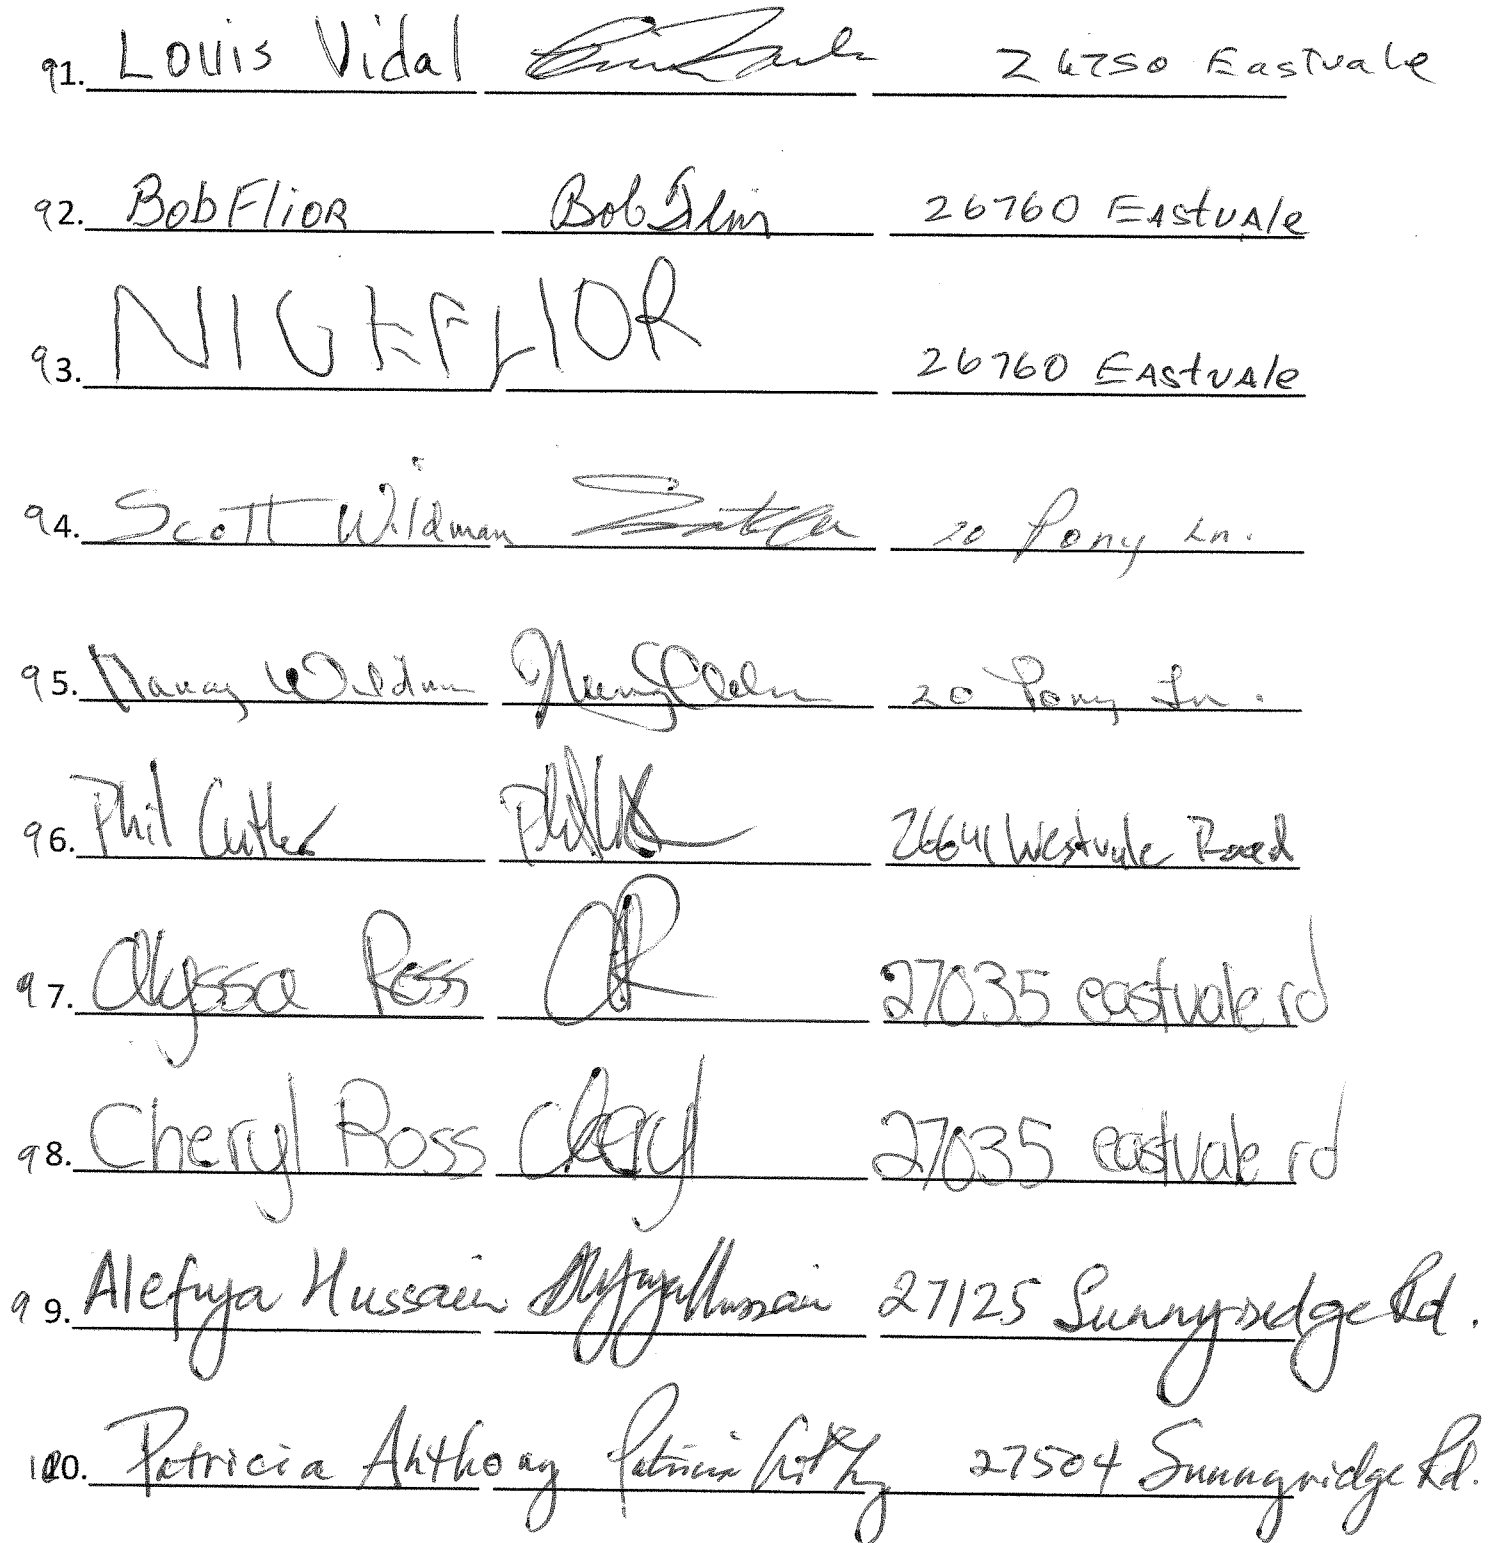 91. Louis Vidal 26750 Eastvale
92. Bob Flior Bob Flior 26760 EastvAle
93. NIGEFLIOR 26760 EastvAle
94. Scott Wildman 20 Pony Ln.
95. Nancy Wildman 20 Pony Ln.
96. Phil Cutler 26641 Westvale Road
97. Alyssa Ross AR 27035 eastvale rd
98. Cheryl Ross Cheryl 27035 eastvale rd
99. Alefiya Hussain Alefiya Hussain 27125 Sunnyridge Rd.
100. Patricia Anthony Patricia Anthony 27504 Sunnyridge Rd.